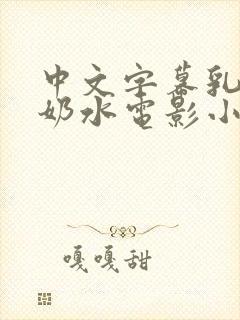 中文字幕乳
奶水电影小
嘎嘎甜